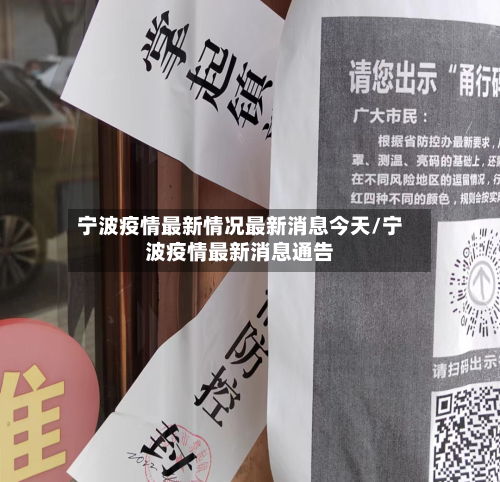 掌起镇
请您出示“甬行码
广大市民：
根据省防控办最新要求，
罩、测温、亮码的基础上，还
在不同风险地区的逗留情况，行
红四种不同的颜色，规则会按实
宁波疫情最新情况最新消息今天/宁
波疫情最新消息通告
情防控
封
请扫码出示
准